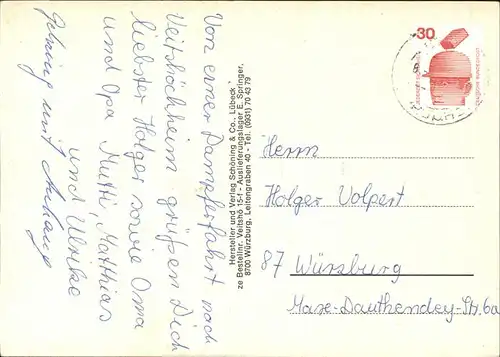 Von einer Dampferfahrt nach
Veitshöchheim grüßen Dich
liebster Holger sowie Oma
und Opa Mutti, Matthias
und Ulrike
Gehring mit Anhang
Hersteller und Verlag Schöning & Co., Lübeck
Bestellnr. Veitshö 15-f - Auslieferungslager E. Springer,
8700 Würzburg, Leitengraben 40 - Tel. (0931) 70 43 79
30
Herrn
Holger Volpert
87 Würzburg
Max-Dauthendey-Str. 6a